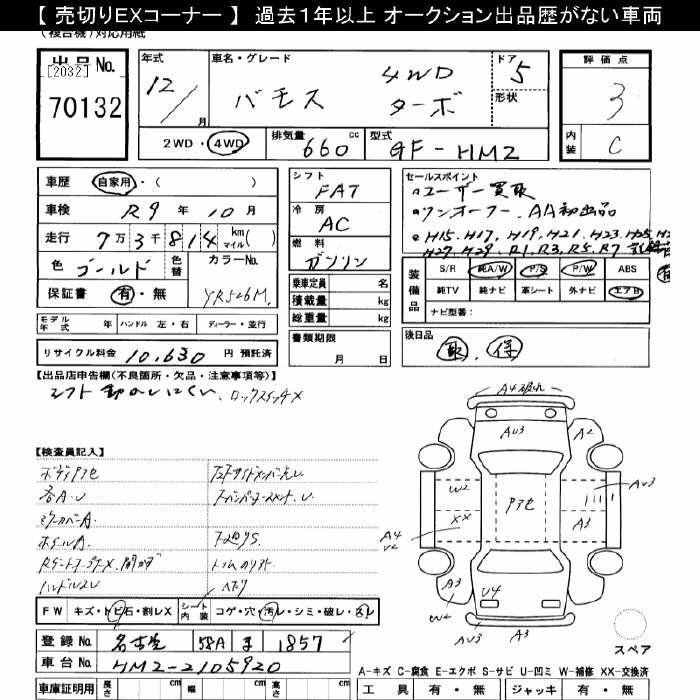 【 売切りEXコーナー 】 過去1年以上 オークション出品歴がない車両
(複合機)対応用紙
出品No.
[2032]
70132
年式
12/
月
車名・グレード
バモス
4WD
ターボ
ドア
5
形状
評価点
3
内装
C
2WD・4WD
排気量
660
cc
型式
GF-HM2
車歴
自家用・( )
車検
R9 年 10 月
走行
7万3千814
km
マイル( )
色
ゴールド
色替
カラーNo.
YR526M
保証書
有・無
モデル年式
年
ハンドル 左・右
ディーラー・並行
リサイクル料金 10,630 円 預託済
シフト
FAT
冷房
AC
燃料
ガソリン
乗車定員 名
積載量 kg
総重量 kg
書類期限
月 日
セールスポイント
ユーザー買取
ワンオーナー、AA初出品
H15.H17.H19.H21.H23.H25.H2
H27.H29.R1.R3.R5.R7
装備品
S/R
純A/W
P/S
P/W
ABS
純TV
純ナビ
革シート
外ナビ
エアB
ナビ型番：
後日品
取、保
【出品店申告欄(不良箇所・欠品・注意事項等)】
シフト動かしにくい、ロックスイッチ×
【検査員記入】
ミラーカバーA
ホイールA
ハンドルスレ
下回りS
FW
キズ・トビ石・割レX
シート内装
コゲ・穴・汚レ・シミ・破レ・スレ
登録No.
名古屋 58A ま 1857
車台No.
HM2-2105920
車庫証明用
長さ
cm
幅
cm
高さ
cm
A4破れ
AU3
A2
W2
アセ
AU3
XX
A3
A4
U2
A3
W2
U4
AU3
A3
スペア
A-キズ C-腐食 E-エクボ S-サビ U-凹ミ W-補修 XX-交換済
工具 有・無 ジャッキ 有・無